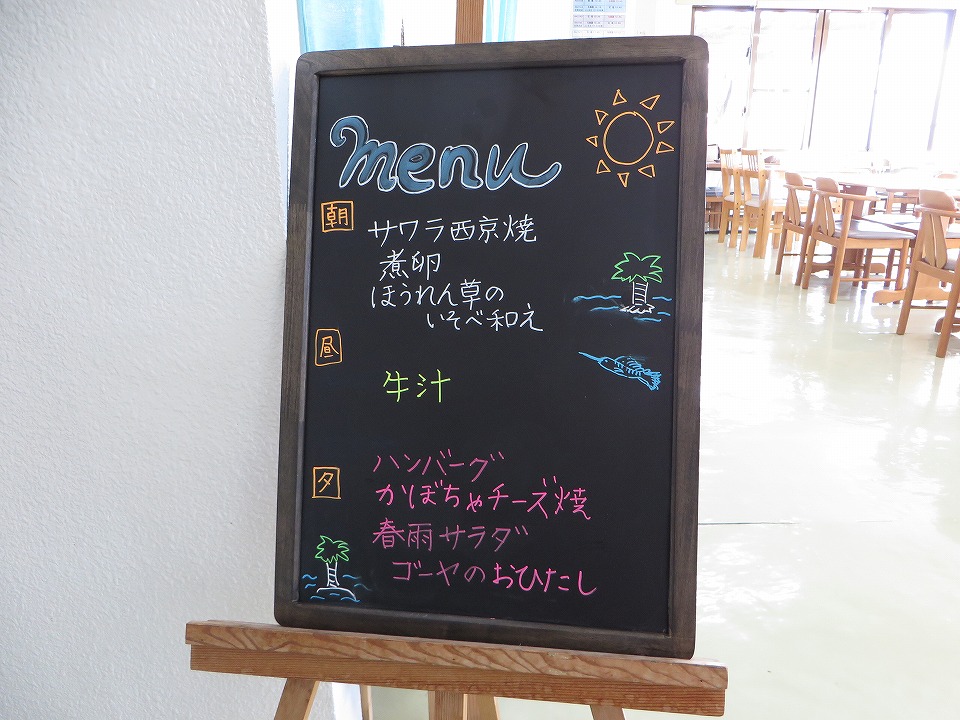 menu
朝
サワラ西京焼
煮卵
ほうれん草の
いそべ和え
昼
牛汁
夕
ハンバーグ
かぼちゃチーズ焼
春雨サラダ
ゴーヤのおひたし